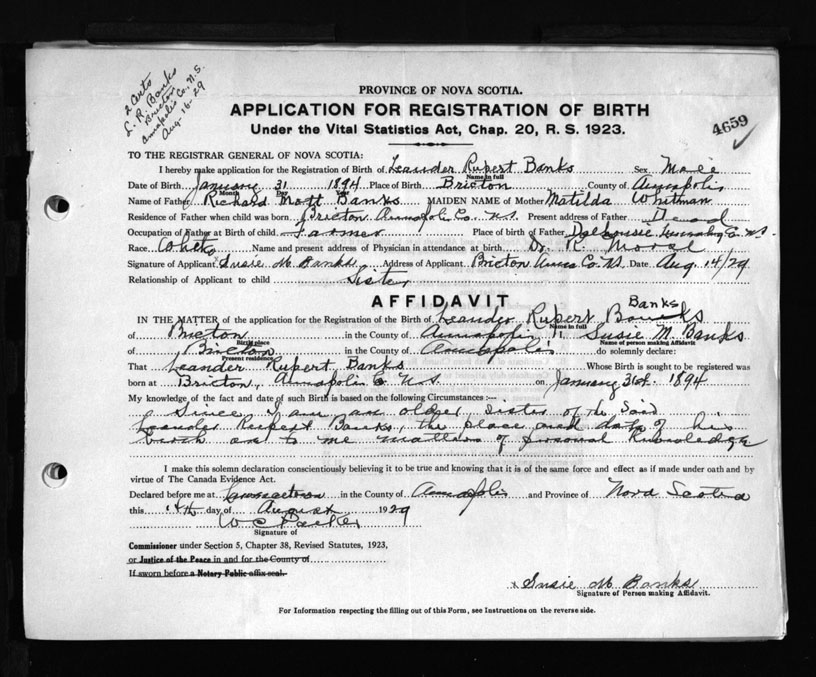 2 Certs
L. R. Banks
Bricton
Annapolis Co. N.S.
Aug-16-29
PROVINCE OF NOVA SCOTIA.
APPLICATION FOR REGISTRATION OF BIRTH
Under the Vital Statistics Act, Chap. 20, R. S. 1923.
4659
TO THE REGISTRAR GENERAL OF NOVA SCOTIA:
I hereby make application for the Registration of Birth of Leander Rupert Banks Sex Male
Name in full
Date of Birth January 31 1894 Place of Birth Bricton County of Annapolis
Month Day Year
Name of Father Richard Mott Banks MAIDEN NAME of Mother Matilda Whitman
Residence of Father when child was born Bricton Annapolis Co. N.S. Present address of Father Dead
Occupation of Father at Birth of child Farmer Place of birth of Father Dalhousie Co. N.S.
Race White Name and present address of Physician in attendance at birth Dr. R.
Signature of Applicant x Susie M Banks Address of Applicant Bricton Anna Co. N.S. Date Aug. 14/29
Relationship of Applicant to child Sister
AFFIDAVIT
Banks
IN THE MATTER of the application for the Registration of the Birth of Leander Rupert Banks
Name in full
of Bricton in the County of Annapolis I, Susie M. Banks
Birth place Name of person making Affidavit
of Bricton in the County of Annapolis do solemnly declare:
Present residence
That Leander Rupert Banks Whose Birth is sought to be registered was
born at Bricton, Annapolis Co N.S. on January 31st. 1894
My knowledge of the fact and date of such Birth is based on the following Circumstances :—
Since I am an older sister of the said
Leander Rupert Banks, the place and date of his
birth are to me matters of personal knowledge
I make this solemn declaration conscientiously believing it to be true and knowing that it is of the same force and effect as if made under oath and by
virtue of The Canada Evidence Act.
Declared before me at Lawrencetown in the County of Annapolis and Province of Nova Scotia
this 14th day of August 1929
W C Parker
Signature of
Commissioner under Section 5, Chapter 38, Revised Statutes, 1923,
or Justice of the Peace in and for the County of
If sworn before a Notary Public affix seal.
x Susie M Banks
Signature of Person making Affidavit.
For Information respecting the filling out of this Form, see Instructions on the reverse side.